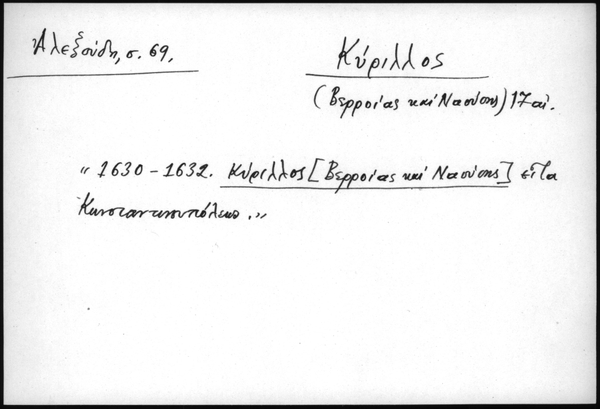 Ἀλεξούδη, σ. 69,
Κύριλλος
(Βερροίας καὶ Ναούσης) 17 αἰ.
"1630 - 1632. Κύριλλος [Βερροίας καὶ Ναούσης] εἶτα
Κωνσταντινουπόλεως."